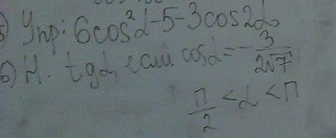 5) Упр: 6cos²α-5-3cos2α
6) Н. tgα, если cosα=-3/(2√7)
π/2<α<π